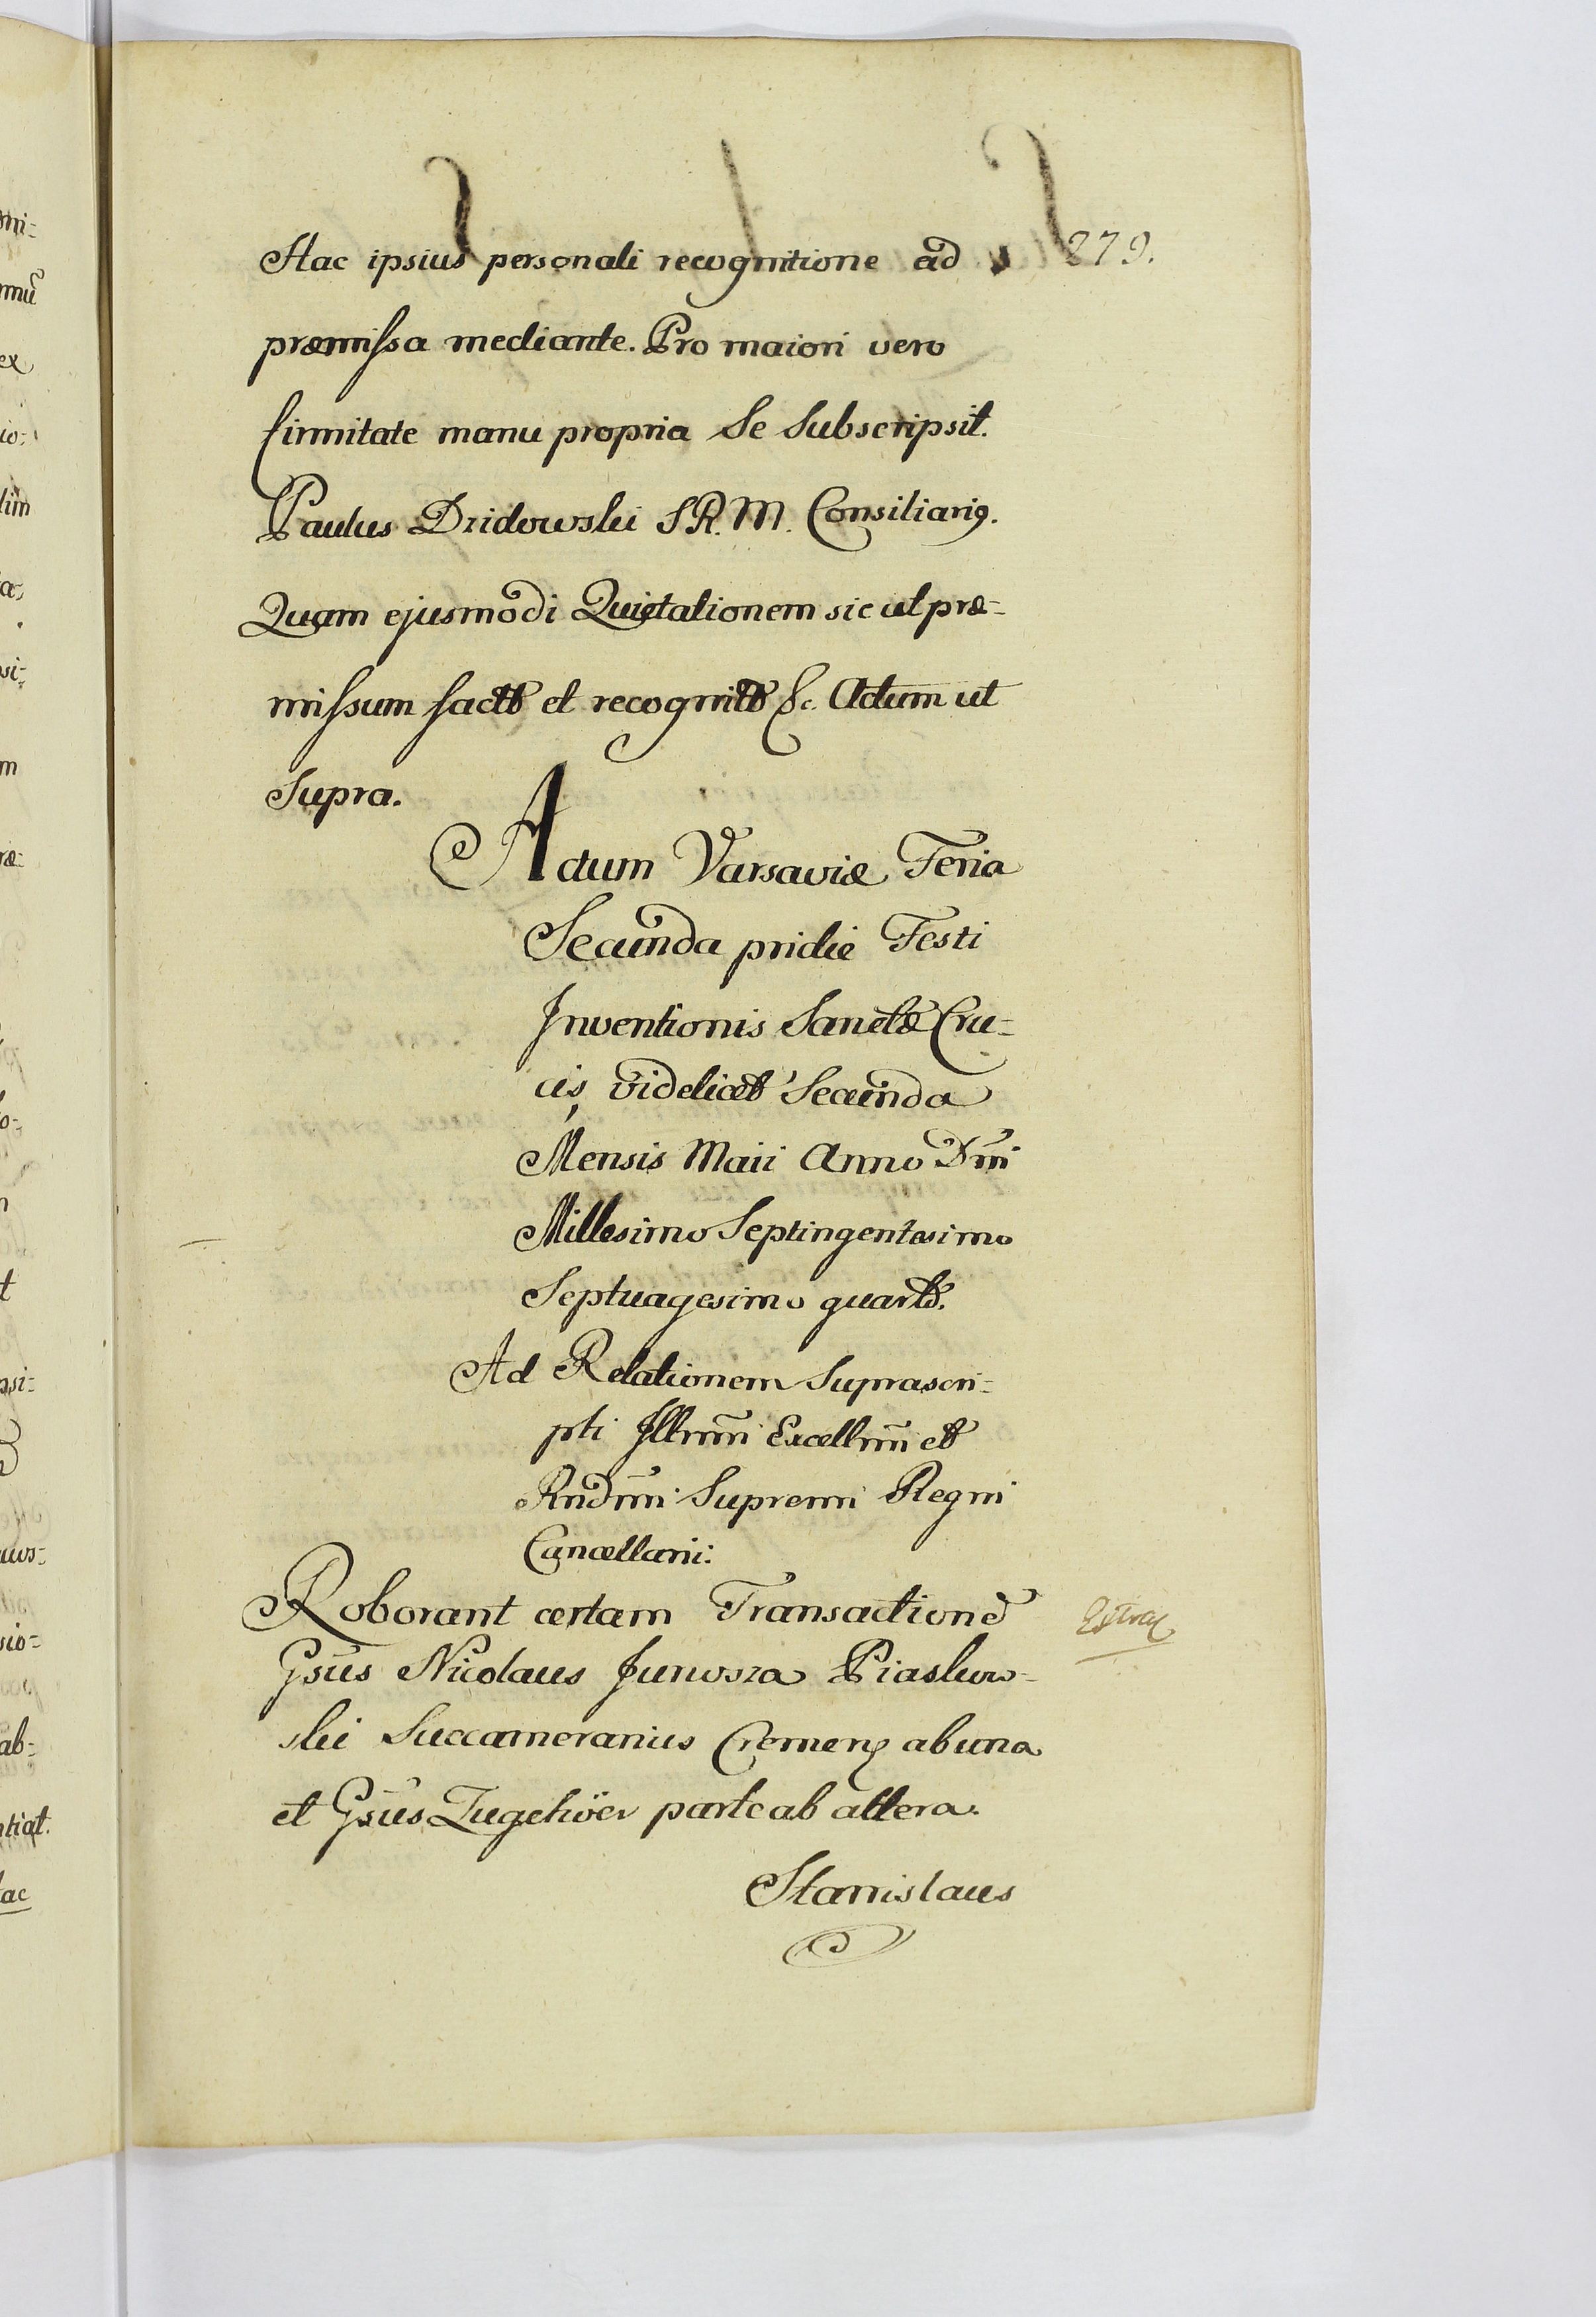 279.
Hac ipsius personali recognitione ad
præmissa mediante. Pro maiori vero
firmitate manu propria Se Subscripsit.
Paulus Dridowski S R. M. Consiliari9.
Quam ejusmodi Quietationem sic ut præ-
missum facto et recognito &c. Actum ut
Supra.
Actum Varsaviæ Feria
Secunda pridie Festi
Inventionis Sanctæ Cru-
cis, videlicet Secunda
Mensis Maii Anno Dni
Millesimo Septingentesimo
Septuagesimo quarto.
Ad Relationem Suprascri-
pti Illrmi Excellmi et
Rndmi Supremi Regni
Cancellarii:
Roborant certam Transactione
Gsus Nicolaus Junosza Piaskow-
ski Succamerarius Cremen ab una
et Gsus Zugehöer parte ab altera.
Stanislaus